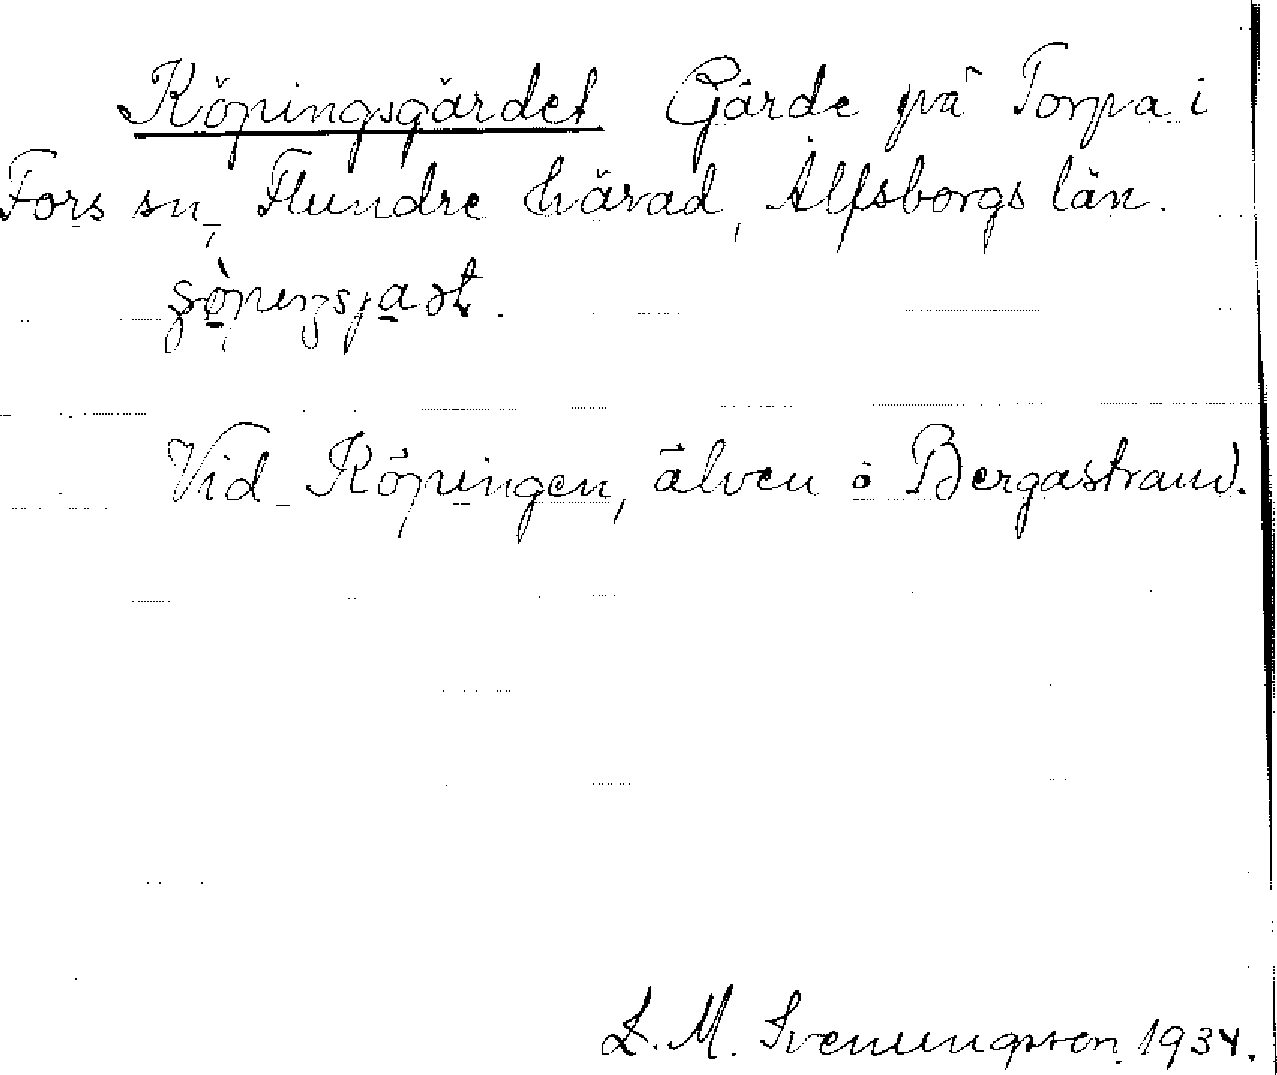 Köpingsgärdet Gärde på Torpa i
Fors sn, Flundre härad, Älfsborgs län.
Vid Köpingen, älven o Bergastrand.
L. M. Svenungsson 1934.